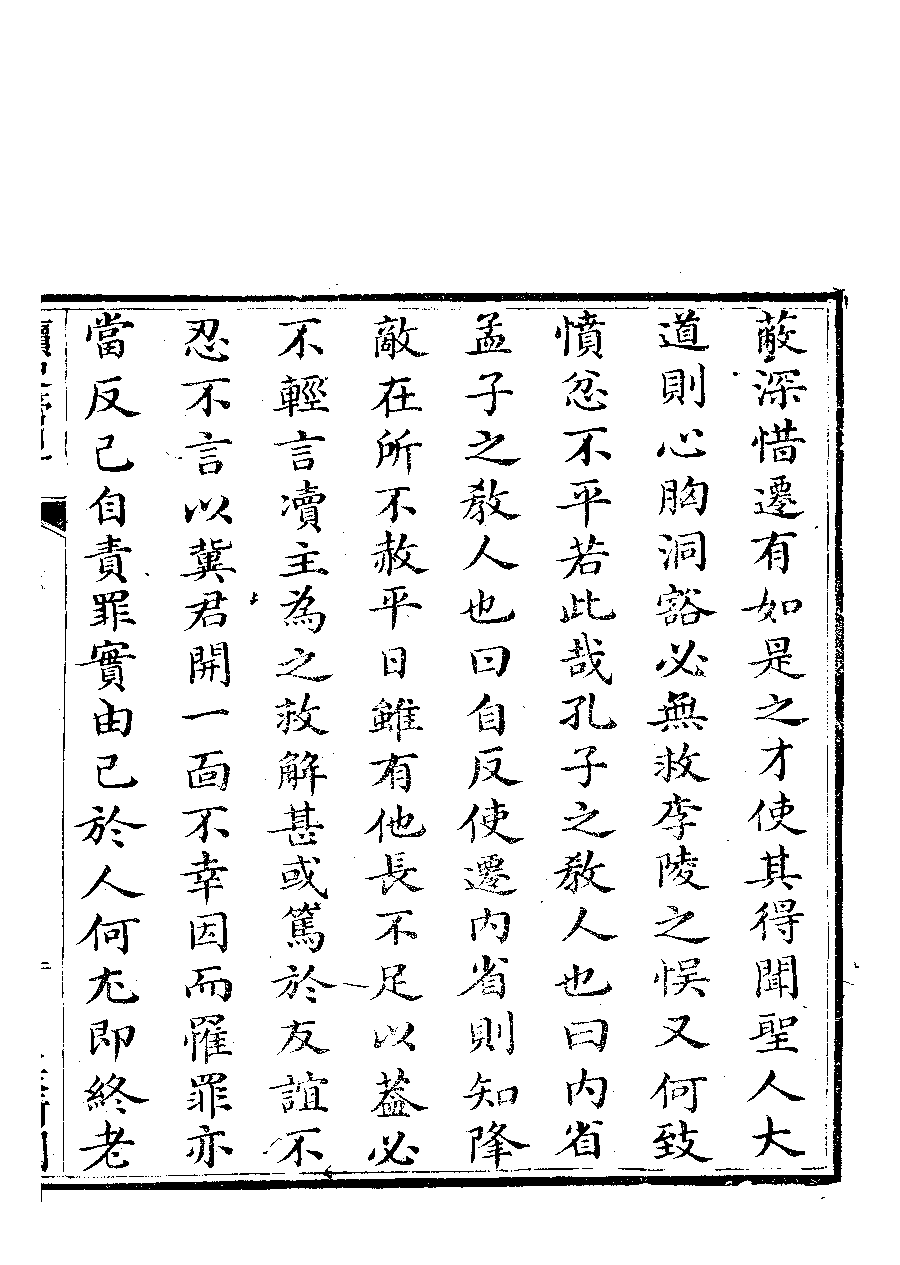 蔽深惜遷有如是之才使其得聞聖人大
道則心胸洞豁必無救李陵之悞又何致
憤忿不平若此哉孔子之教人也曰内省
孟子之教人也曰自反使遷内省則知降
敵在所不赦平日雖有他長不足以葢必
不輕言凟主為之救解甚或篤於友誼不
忍不言以冀君開一面不幸因而罹罪亦
當反己自責罪實由己於人何尤即終老